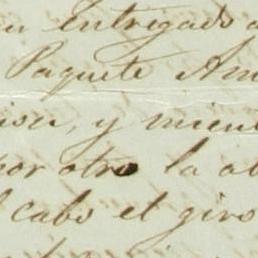 entregado
Paquete Am
y mient
por otro la ab
cabo el giro